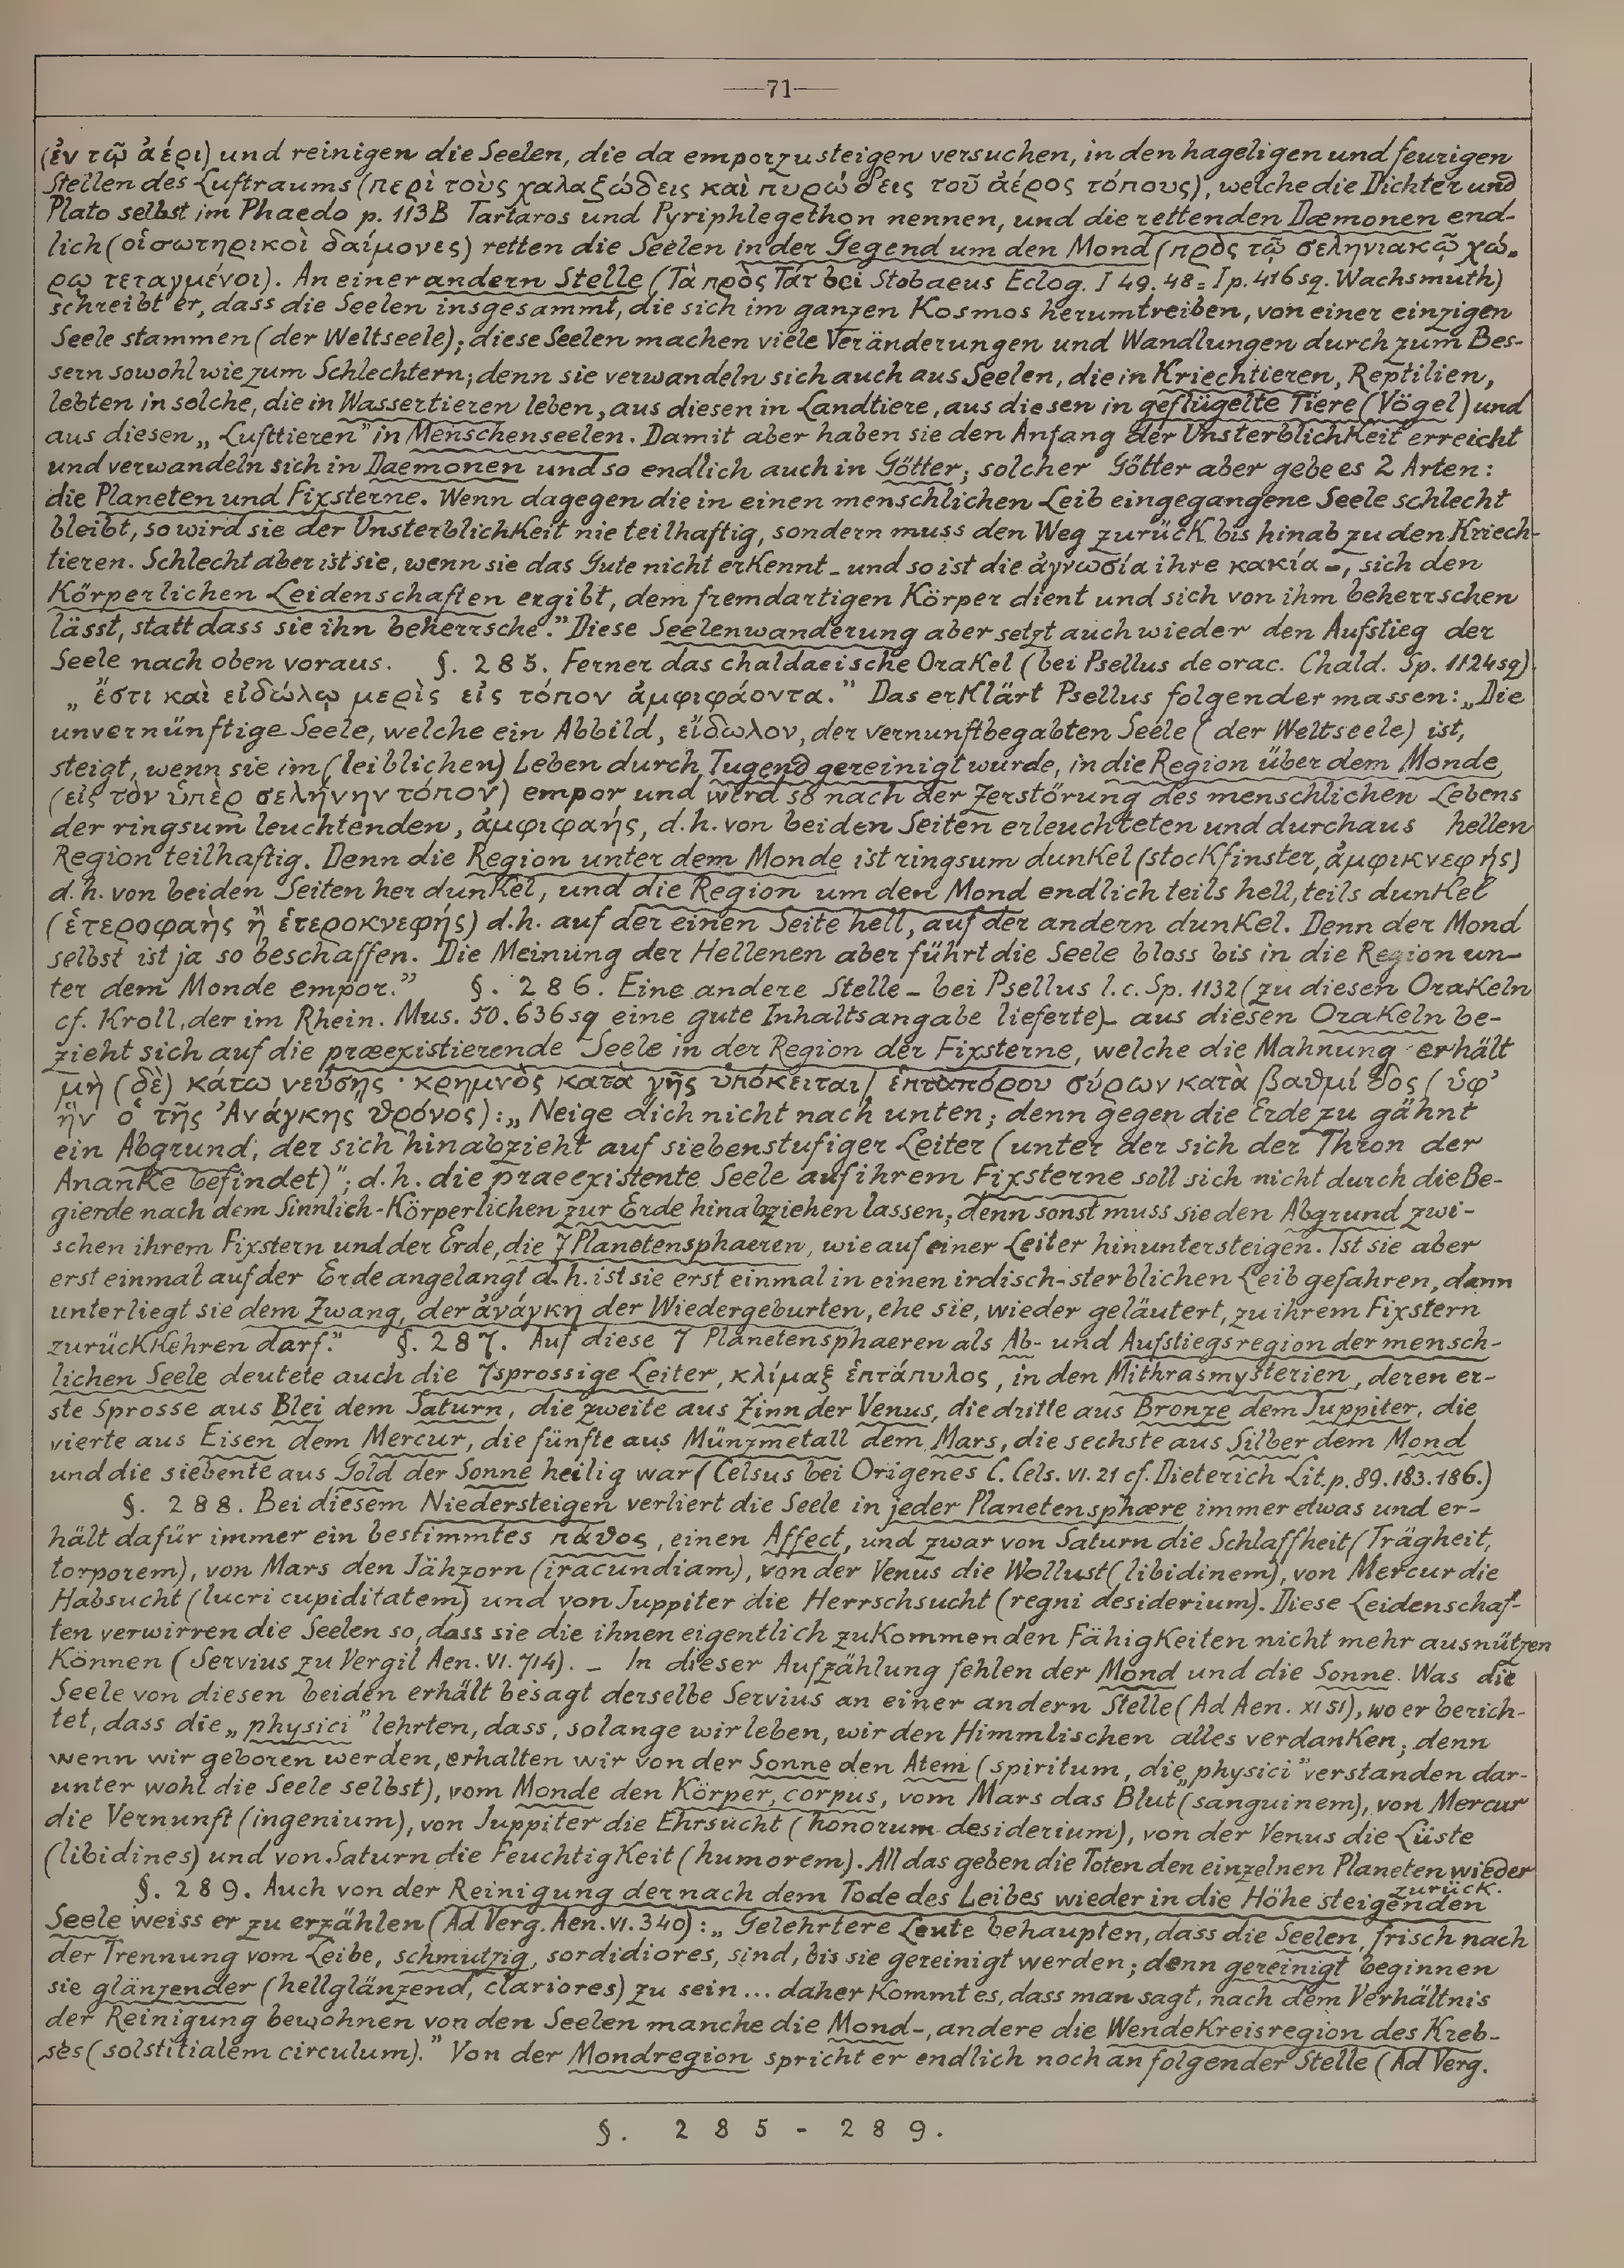 —71—
(ἐν τῷ ἀέρι) und reinigen die Seelen, die da emporzusteigen versuchen, in den hageligen und feurigen
Stellen des Luftraums (περὶ τοὺς χαλαξώδεις καὶ πυρώδεις τοῦ ἀέρος τόπους), welche die Dichter und
Plato selbst im Phaedo p. 113B Tartaros und Pyriphlegethon nennen, und die rettenden Dæmonen end-
lich (οἱ σωτηρικοὶ δαίμονες) retten die Seelen in der Gegend um den Mond (πρὸς τῷ σεληνιακῷ χώ-
ρῳ τεταγμένοι). An einer andern Stelle (Τὰ πρὸς Τάτ bei Stobaeus Eclog. I 49. 48 = I p. 416 sq. Wachsmuth)
schreibt er, dass die Seelen insgesammt, die sich im ganzen Kosmos herumtreiben, von einer einzigen
Seele stammen (der Weltseele); diese Seelen machen viele Veränderungen und Wandlungen durch zum Bes-
sern sowohl wie zum Schlechtern; denn sie verwandeln sich auch aus Seelen, die in Kriechtieren, Reptilien,
lebten in solche, die in Wassertieren leben, aus diesen in Landtiere, aus diesen in geflügelte Tiere (Vögel) und
aus diesen „Lufttieren" in Menschenseelen. Damit aber haben sie den Anfang der Unsterblichkeit erreicht
und verwandeln sich in Daemonen und so endlich auch in Götter; solcher Götter aber gebe es 2 Arten:
die Planeten und Fixsterne. Wenn dagegen die in einen menschlichen Leib eingegangene Seele schlecht
bleibt, so wird sie der Unsterblichkeit nie teilhaftig, sondern muss den Weg zurück bis hinab zu den Kriech-
tieren. Schlecht aber ist sie, wenn sie das Gute nicht erkennt - und so ist die ἀγνωσία ihre κακία -, sich den
Körperlichen Leidenschaften ergibt, dem fremdartigen Körper dient und sich von ihm beherrschen
lässt, statt dass sie ihn beherrsche." Diese Seelenwanderung aber setzt auch wieder den Aufstieg der
Seele nach oben voraus. §. 285. Ferner das chaldaeische Orakel (bei Psellus de orac. Chald. Sp. 1124 sq).
„ἔστι καὶ εἰδώλῳ μερὶς εἰς τόπον ἀμφιφάοντα." Das erklärt Psellus folgendermassen: „Die
unvernünftige Seele, welche ein Abbild, εἴδωλον, der vernunftbegabten Seele (der Weltseele) ist,
steigt, wenn sie im (leiblichen) Leben durch Tugend gereinigt wurde, in die Region über dem Monde
(εἰς τὸν ὑπὲρ σελήνην τόπον) empor und wird so nach der Zerstörung des menschlichen Lebens
der ringsum leuchtenden, ἀμφιφαής, d.h. von beiden Seiten erleuchteten und durchaus hellen
Region teilhaftig. Denn die Region unter dem Monde ist ringsum dunkel (stockfinster, ἀμφικνεφής)
d.h. von beiden Seiten her dunkel, und die Region um den Mond endlich teils hell, teils dunkel
(ἑτεροφαὴς ἢ ἑτεροκνεφής) d.h. auf der einen Seite hell, auf der andern dunkel. Denn der Mond
selbst ist ja so beschaffen. Die Meinung der Hellenen aber führt die Seele bloss bis in die Region un-
ter dem Monde empor." §. 286. Eine andere Stelle - bei Psellus l.c. Sp. 1132 (zu diesen Orakeln
cf. Kroll, der im Rhein. Mus. 50. 636 sq eine gute Inhaltsangabe lieferte) - aus diesen Orakeln be-
zieht sich auf die præexistierende Seele in der Region der Fixsterne, welche die Mahnung erhält
μὴ (δὲ) κάτω νεύσῃς · κρημνὸς κατὰ γῆς ὑπόκειται / ἑπταπόρου σύρων κατὰ βαθμίδος (ὑφ'
ἣν ὁ τῆς Ἀνάγκης θρόνος): „Neige dich nicht nach unten; denn gegen die Erde zu gähnt
ein Abgrund, der sich hinabzieht auf siebenstufiger Leiter (unter der sich der Thron der
Ananke befindet)"; d.h. die praeexistente Seele auf ihrem Fixsterne soll sich nicht durch die Be-
gierde nach dem Sinnlich-Körperlichen zur Erde hinabziehen lassen; denn sonst muss sie den Abgrund zwi-
schen ihrem Fixstern und der Erde, die 7 Planetensphaeren, wie auf einer Leiter hinuntersteigen. Ist sie aber
erst einmal auf der Erde angelangt d.h. ist sie erst einmal in einen irdisch-sterblichen Leib gefahren, dann
unterliegt sie dem Zwang, der ἀνάγκη der Wiedergeburten, ehe sie, wieder geläutert, zu ihrem Fixstern
zurückkehren darf." §. 287. Auf diese 7 Planetensphaeren als Ab- und Aufstiegsregion der mensch-
lichen Seele deutete auch die 7sprossige Leiter, κλίμαξ ἑπτάπυλος, in den Mithrasmysterien, deren er-
ste Sprosse aus Blei dem Saturn, die zweite aus Zinn der Venus, die dritte aus Bronze dem Juppiter, die
vierte aus Eisen dem Mercur, die fünfte aus Münzmetall dem Mars, die sechste aus Silber dem Mond
und die siebente aus Gold der Sonne heilig war (Celsus bei Origenes C. Cels. VI. 21 cf. Dieterich Lit. p. 89. 183. 186.)
§. 288. Bei diesem Niedersteigen verliert die Seele in jeder Planetensphære immer etwas und er-
hält dafür immer ein bestimmtes πάθος, einen Affect, und zwar von Saturn die Schlaffheit (Trägheit,
torporem), von Mars den Jähzorn (iracundiam), von der Venus die Wollust (libidinem), von Mercur die
Habsucht (lucri cupiditatem) und von Juppiter die Herrschsucht (regni desiderium). Diese Leidenschaf-
ten verwirren die Seelen so, dass sie die ihnen eigentlich zukommenden Fähigkeiten nicht mehr ausnützen
können (Servius zu Vergil Aen. VI. 714). - In dieser Aufzählung fehlen der Mond und die Sonne. Was die
Seele von diesen beiden erhält besagt derselbe Servius an einer andern Stelle (Ad Aen. XI 51), wo er berich-
tet, dass die „physici" lehrten, dass, solange wir leben, wir den Himmlischen alles verdanken; denn
wenn wir geboren werden, erhalten wir von der Sonne den Atem (spiritum, die „physici" verstanden dar-
unter wohl die Seele selbst), vom Monde den Körper, corpus, vom Mars das Blut (sanguinem), von Mercur
die Vernunft (ingenium), von Juppiter die Ehrsucht (honorum desiderium), von der Venus die Lüste
(libidines) und von Saturn die Feuchtigkeit (humorem). All das geben die Toten den einzelnen Planeten wieder
zurück.
§. 289. Auch von der Reinigung der nach dem Tode des Leibes wieder in die Höhe steigenden
Seele weiss er zu erzählen (Ad Verg. Aen. VI. 340): „Gelehrtere Leute behaupten, dass die Seelen, frisch nach
der Trennung vom Leibe, schmutzig, sordidiores, sind, bis sie gereinigt werden; denn gereinigt beginnen
sie glänzender (hellglänzend, clariores) zu sein... daher kommt es, dass man sagt, nach dem Verhältnis
der Reinigung bewohnen von den Seelen manche die Mond-, andere die Wendekreisregion des Kreb-
ses (solstitialem circulum)." Von der Mondregion spricht er endlich noch an folgender Stelle (Ad Verg.
§. 285 - 289.